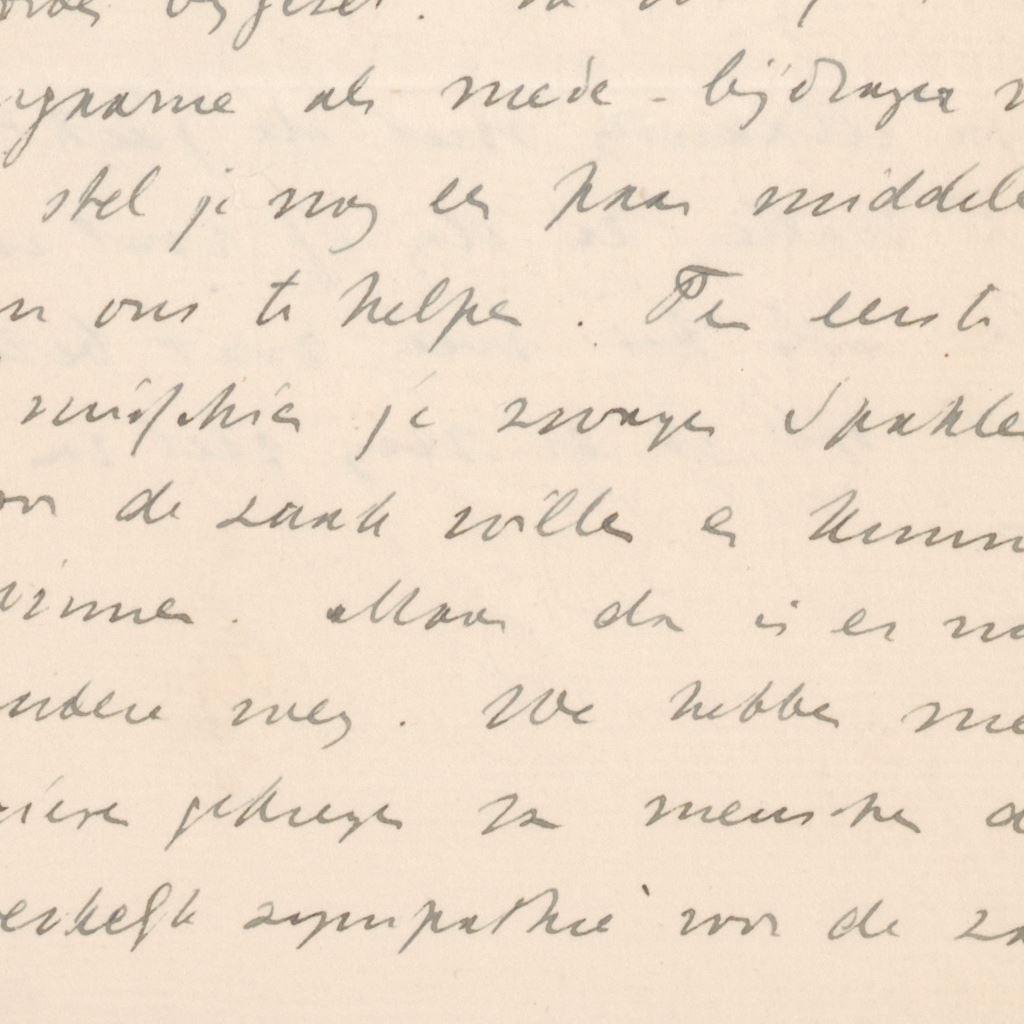 gaarne als mede-bijdragen
stel je nog een paar middelen
ons te helpen. Ten eerste
misschien je zwager Spakler
voor de zaak willen en kunnen
winnen. Maar dan is er nog
andere weg. We hebben me
gekregen van menschen d
werkelijk sympathie voor de za